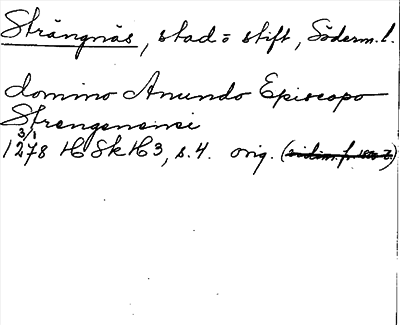 Strängnäs, stad o stift, Söderm. l.
domino Anundo Episcopo
Strengensinsi
3/1
1278 HSkH3, s. 4. orig. (vidim. fr.